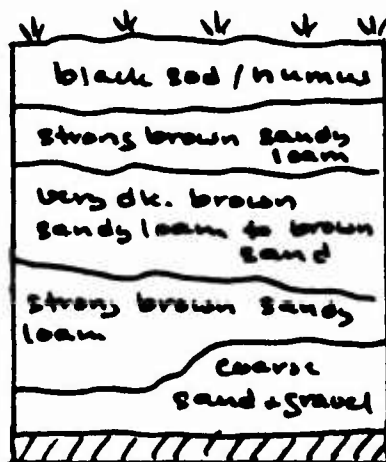 black sod / humus
strong brown sandy
loam
very dk. brown
sandy loam to brown
sand
strong brown sandy
loam
coarse
sand + gravel